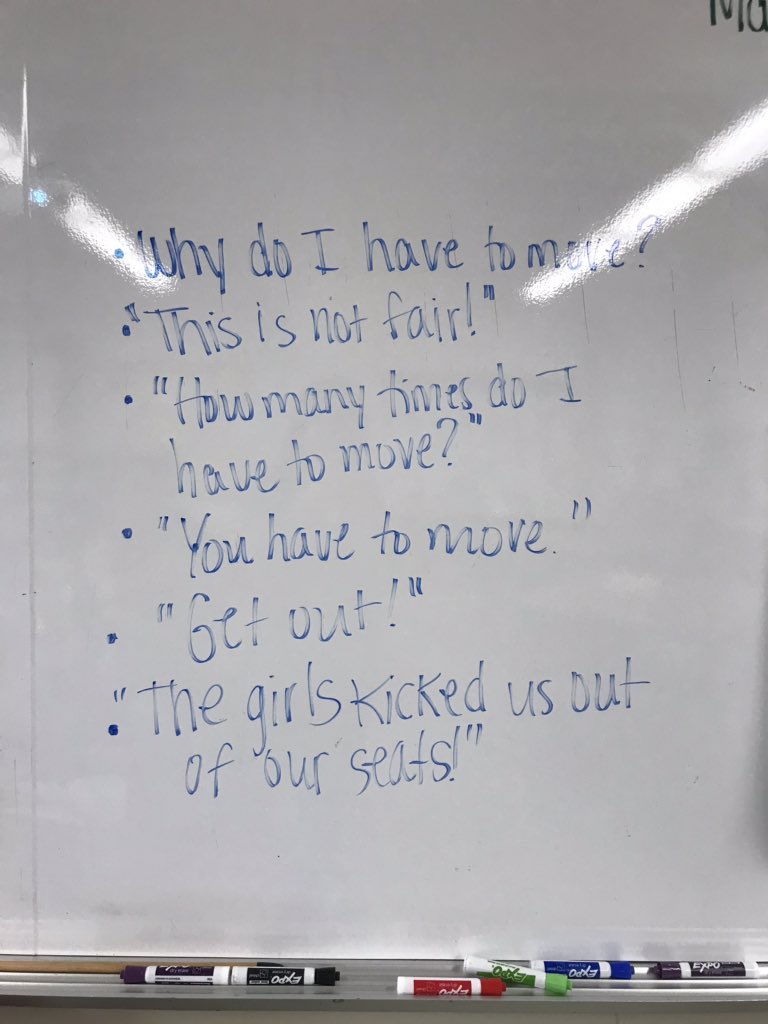 Ma
• Why do I have to move?
• "This is not fair!"
• "How many times do I
have to move?"
• "You have to move."
• "Get out!"
• "The girls kicked us out
of our seats!"
EXPO
EXPO
EXPO
EXPO
EXPO